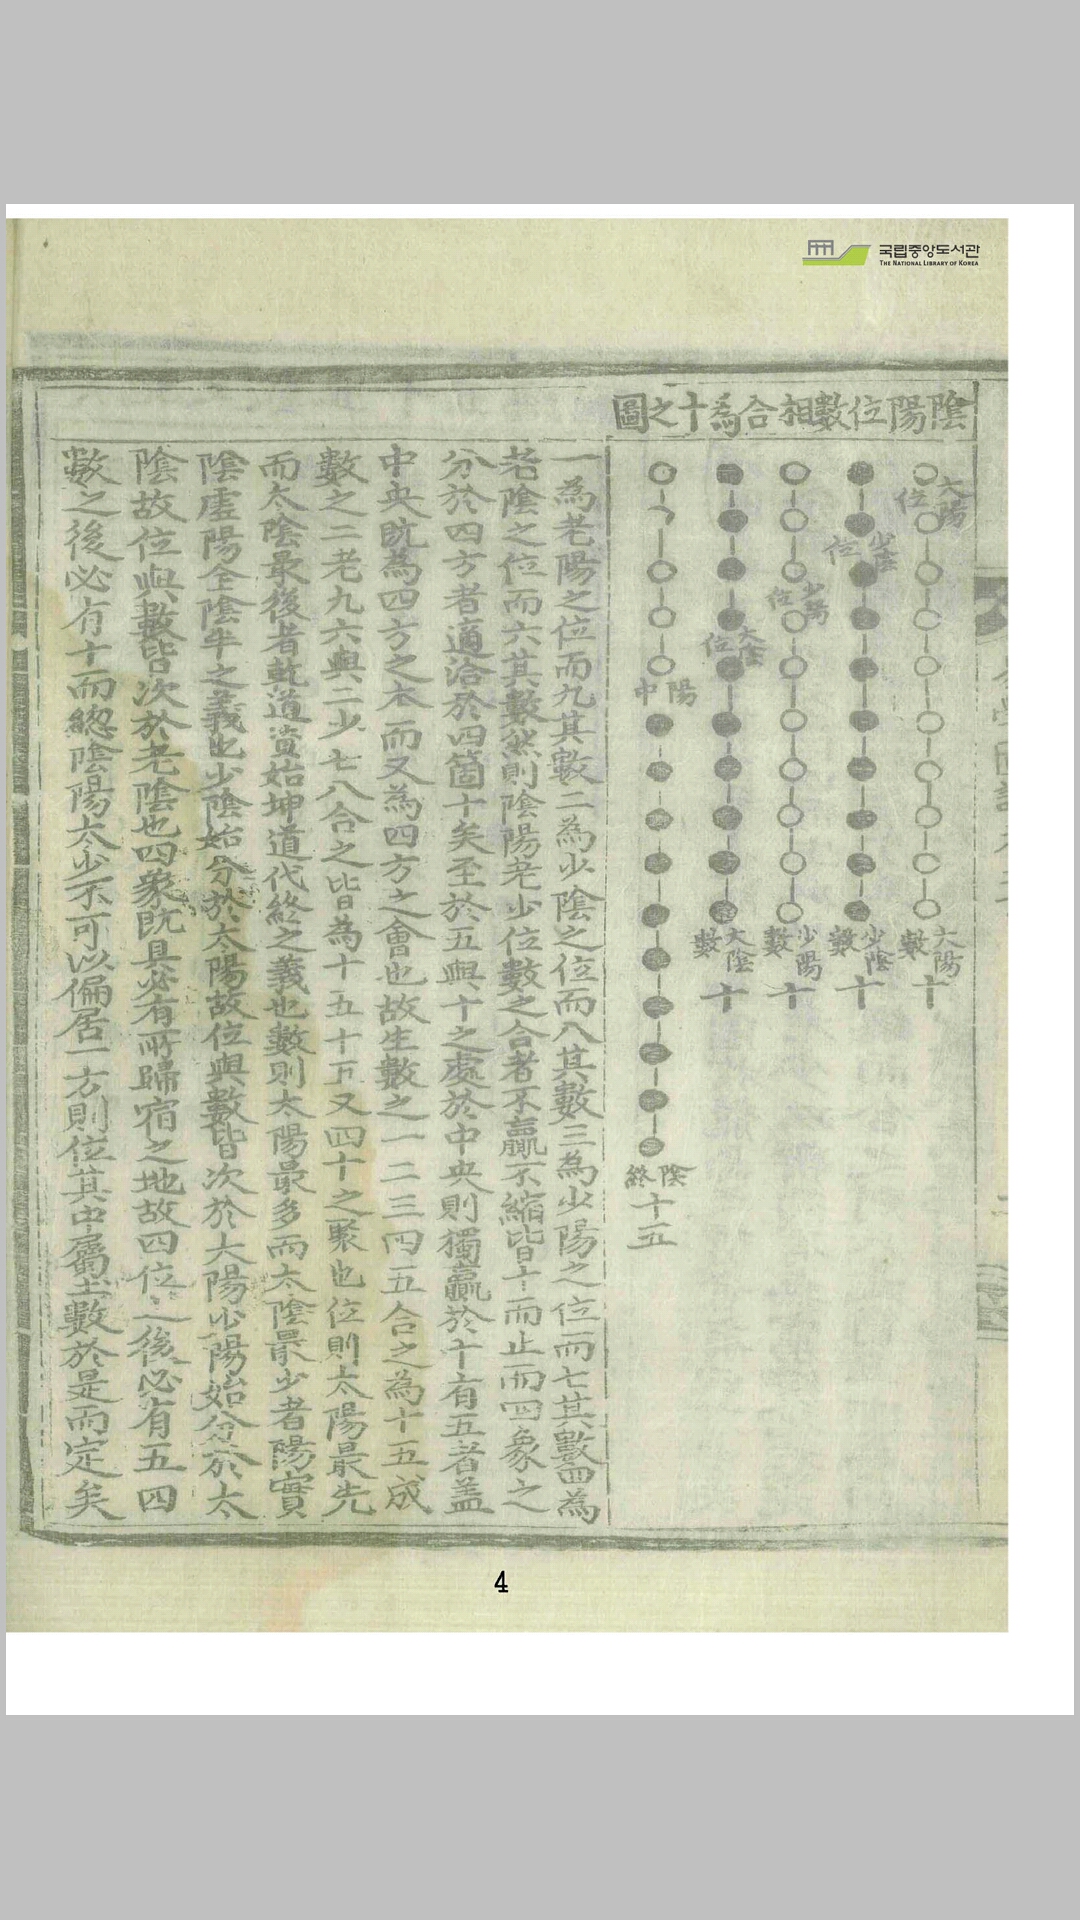 국립중앙도서관
THE NATIONAL LIBRARY OF KOREA
陰陽位數相合爲十之圖
太陽位
太陽數十
少陰位
少陰數十
少陽位
少陽數十
太陰位
太陰數十
陽中
陰終十五
一爲老陽之位而九其數二爲少陰之位而八其數三爲少陽之位而七其數四爲
老陰之位而六其數然則陰陽老少位數之合者不贏不縮皆十而止而四象之
分於四方者適洽於四箇十矣至於五與十之處於中央則獨贏於十有五者盖
中央旣爲四方之本而又爲四方之會也故生數之一二三四五合之爲十五成
數之二老九六與二少七八合之皆爲十五十五又四十之聚也位則太陽最先
而太陰最後者乾道資始坤道代終之義也數則太陽最多而太陰最少者陽實
陰虛陽全陰半之義也少陰始分於太陽故位與數皆次於太陽少陽始分於太
陰故位與數皆次於老陰也四象旣具必有所歸宿之地故四位之後必有五四
數之後必有十而總陰陽太少不可以偏居一方則位其中屬土數於是而定矣
4